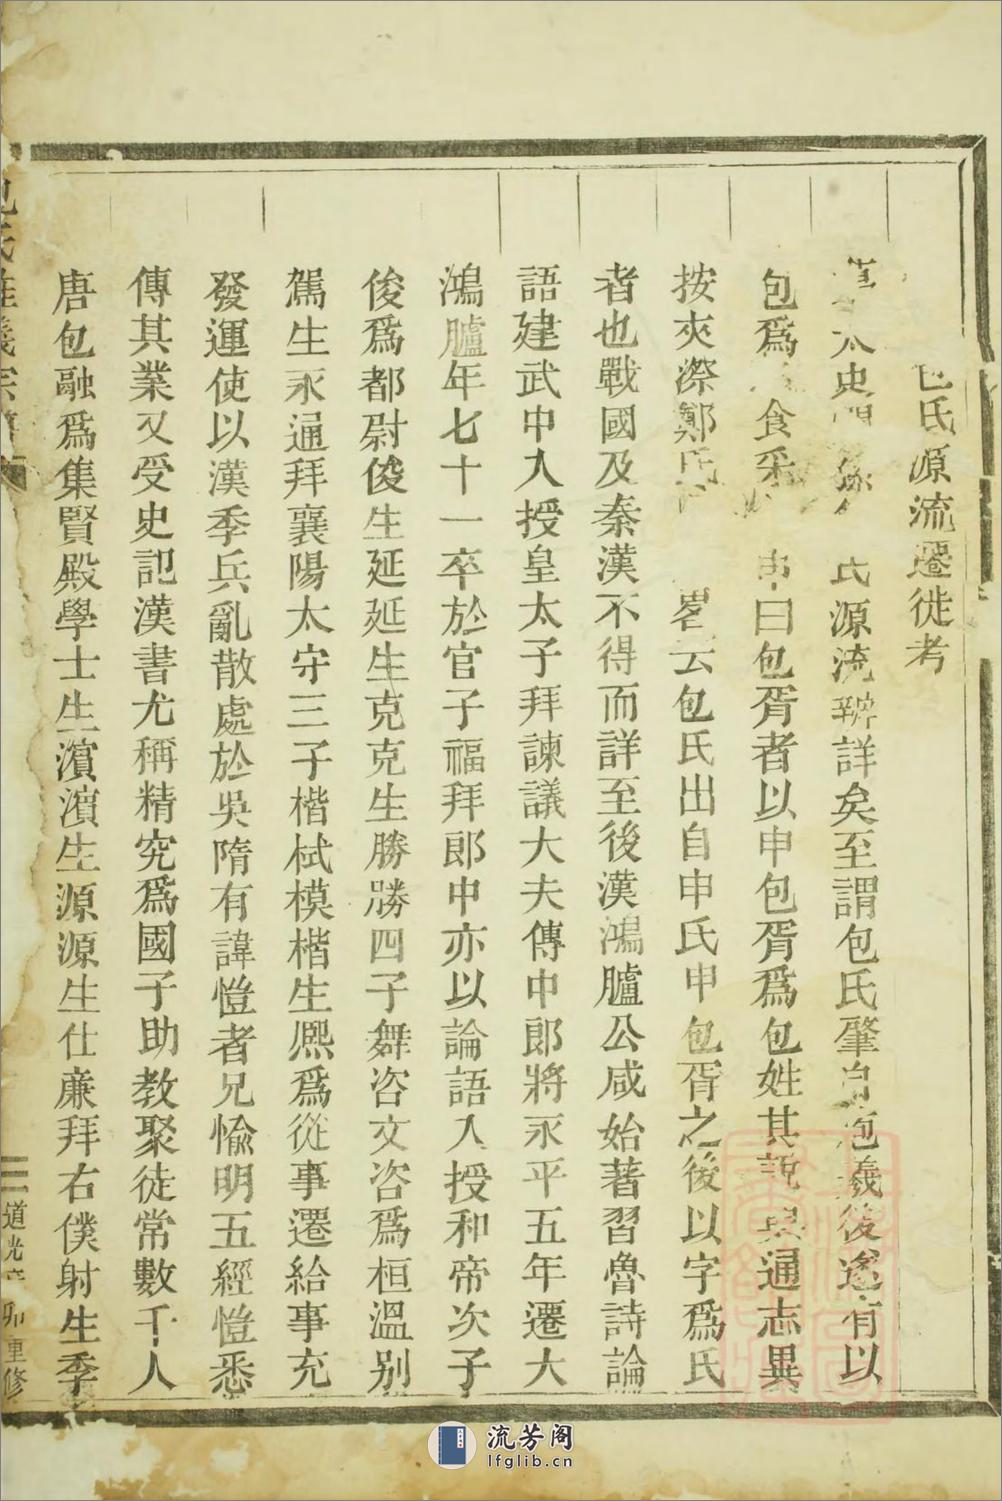 包氏源流遷徙考
太史 氏源流辨詳矣至謂包氏肇自庖羲後遂有以
包爲 食采 申曰包胥者以申包胥爲包姓其說與通志異
按夾漈鄭氏 云包氏出自申氏申包胥之後以字爲氏
者也戰國及秦漢不得而詳至後漢鴻臚公咸始著習魯詩論
語建武中入授皇太子拜諫議大夫傳中郎將永平五年遷大
鴻臚年七十一卒於官子福拜郎中亦以論語入授和帝次子
俊爲都尉俊生延延生克克生勝勝四子舞咨文咨爲桓溫别
駕生永通拜襄陽太守三子楷栻模楷生熈爲從事遷給事充
發運使以漢季兵亂散處於吳隋有諱愷者兄愉明五經愷悉
傳其業又受史記漢書尤稱精究爲國子助教聚徒常數千人
唐包融爲集賢殿學士生濵濵生源源生仕廉拜右僕射生季
包氏 宗譜
道光 卯重修
流芳阁
lfglib.cn